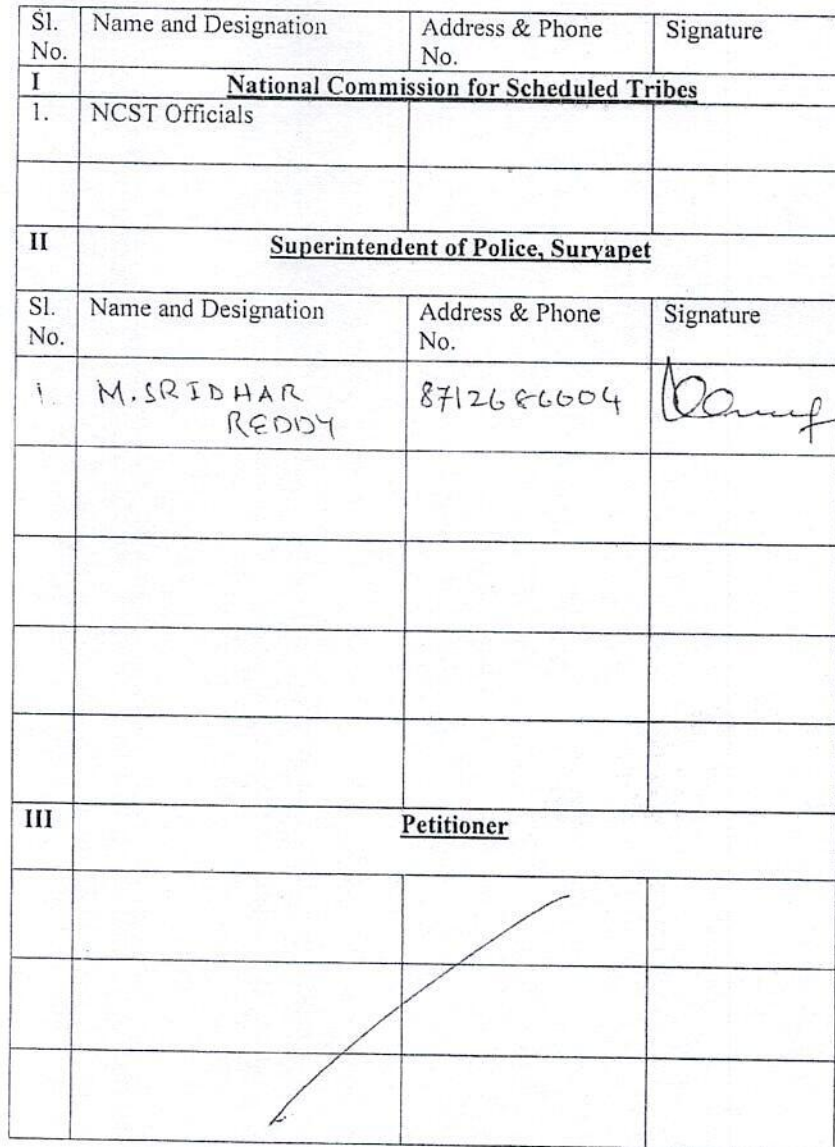 Sl. No. Name and Designation Address & Phone No. Signature
I National Commission for Scheduled Tribes
1. NCST Officials
II Superintendent of Police, Suryapet
Sl. No. Name and Designation Address & Phone No. Signature
1. M. SRIDHAR REDDY 8712686604
III Petitioner